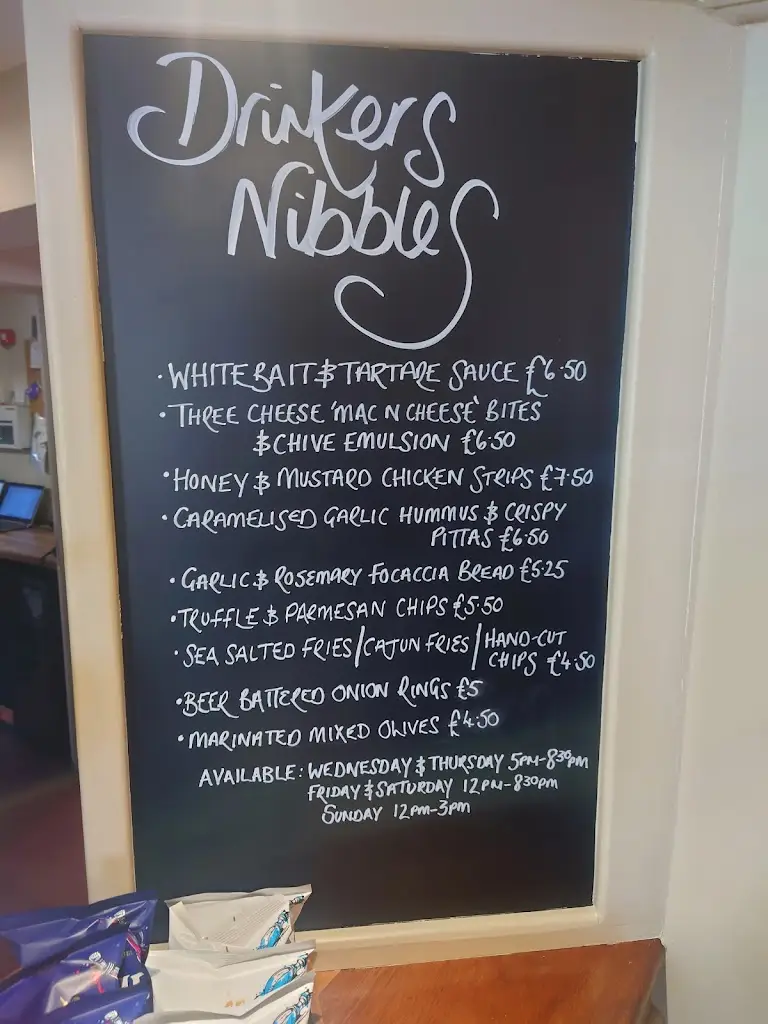 Drinkers
Nibbles
· WHITEBAIT & TARTARE SAUCE £6·50
· THREE CHEESE 'MAC N CHEESE' BITES
& CHIVE EMULSION £6·50
· HONEY & MUSTARD CHICKEN STRIPS £7·50
· CARAMELISED GARLIC HUMMUS & CRISPY
PITTAS £6·50
· GARLIC & ROSEMARY FOCACCIA BREAD £5·25
· TRUFFLE & PARMESAN CHIPS £5·50
· SEA SALTED FRIES / CAJUN FRIES / HAND-CUT
CHIPS £4·50
· BEER BATTERED ONION RINGS £5
· MARINATED MIXED OLIVES £4·50
AVAILABLE: WEDNESDAY & THURSDAY 5PM-8³⁰PM
FRIDAY & SATURDAY 12PM-8³⁰PM
SUNDAY 12PM-3PM